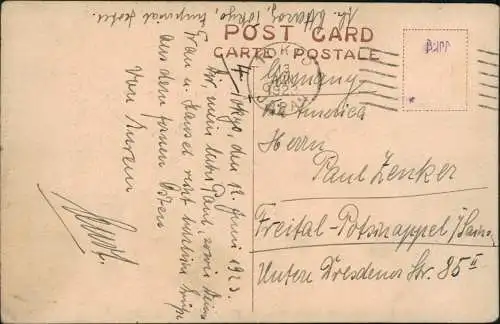 POST CARD
CARTE POSTALE
TOKYO
13
1923
JAPAN
Germany
via America
Herrn
Paul Zenker
Freital-Potschappel i/Sachs.
Untere Dresdener Str. 85 II
Tokyo, Imperial Hotel.
Tokyo, den 12. Juni 1923.
Dir, mein lieber Paul, sowie Deiner
Frau u. Hansel recht herzliche Grüße
aus dem fernen Osten
Von Eurem